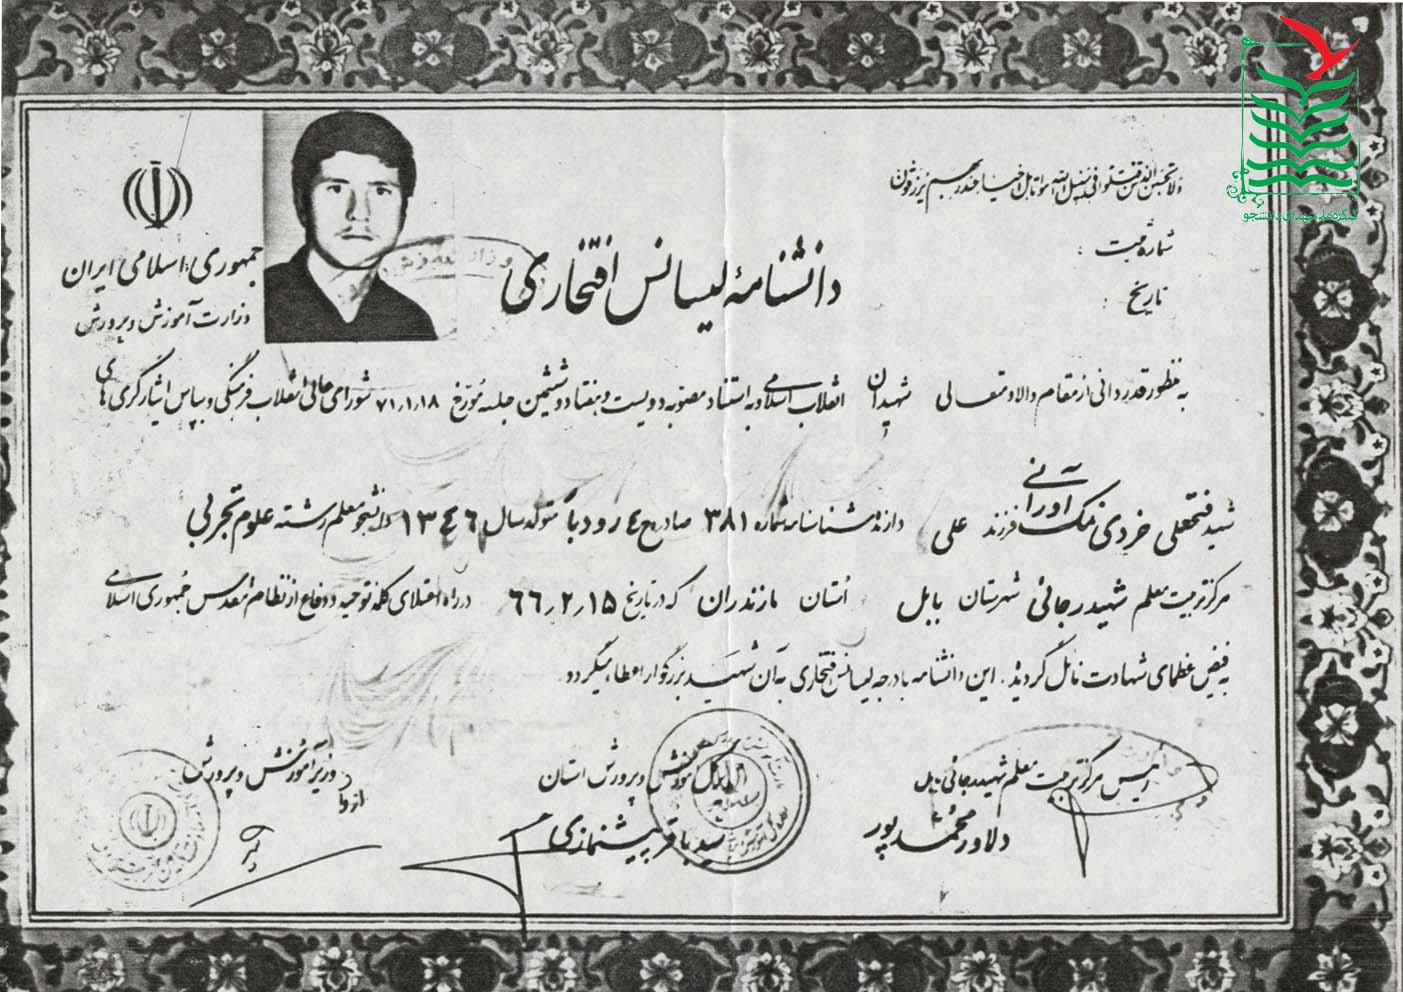 کنگره ملی شهدای دانشجو
ولا تحسبن الذین قتلوا فی سبیل الله امواتا بل احیاء عند ربهم یرزقون
شماره ثبت :
تاریخ :
جمهوری اسلامی ایران
وزارت آموزش و پرورش
دانشنامه لیسانس افتخاری
به منظور قدردانی از مقام والا و متعالی شهیدان انقلاب اسلامی و به استناد مصوبه دویست و هفتاد و ششمین جلسه مورخ ۷۱٫۱٫۱۸ شورای عالی انقلاب فرهنگی و بپاس ایثارگری های
شهید فتحعلی خردی نمک آورانی فرزند علی دارنده شناسنامه شماره ۳۸۱ صادره ح ٤ رودبا متولد سال ۱۳٤٦ دانشجو معلم رشته علوم تجربی
مرکز تربیت معلم شهید رجائی شهرستان بابل استان مازندران که در تاریخ ٦٦٫۲٫۱۵ در راه اعتلای کلمه توحید و دفاع از نظام مقدس جمهوری اسلامی
به فیض عظمای شهادت نائل گردید. این دانشنامه با درجه لیسانس افتخاری به آن شهید بزرگوار اعطا میگردد.
رئیس مرکز تربیت معلم شهید رجائی بابل
دلاور محمدپور
مدیر کل آموزش و پرورش استان
سید باقر پیشنمازی
وزیر آموزش و پرورش